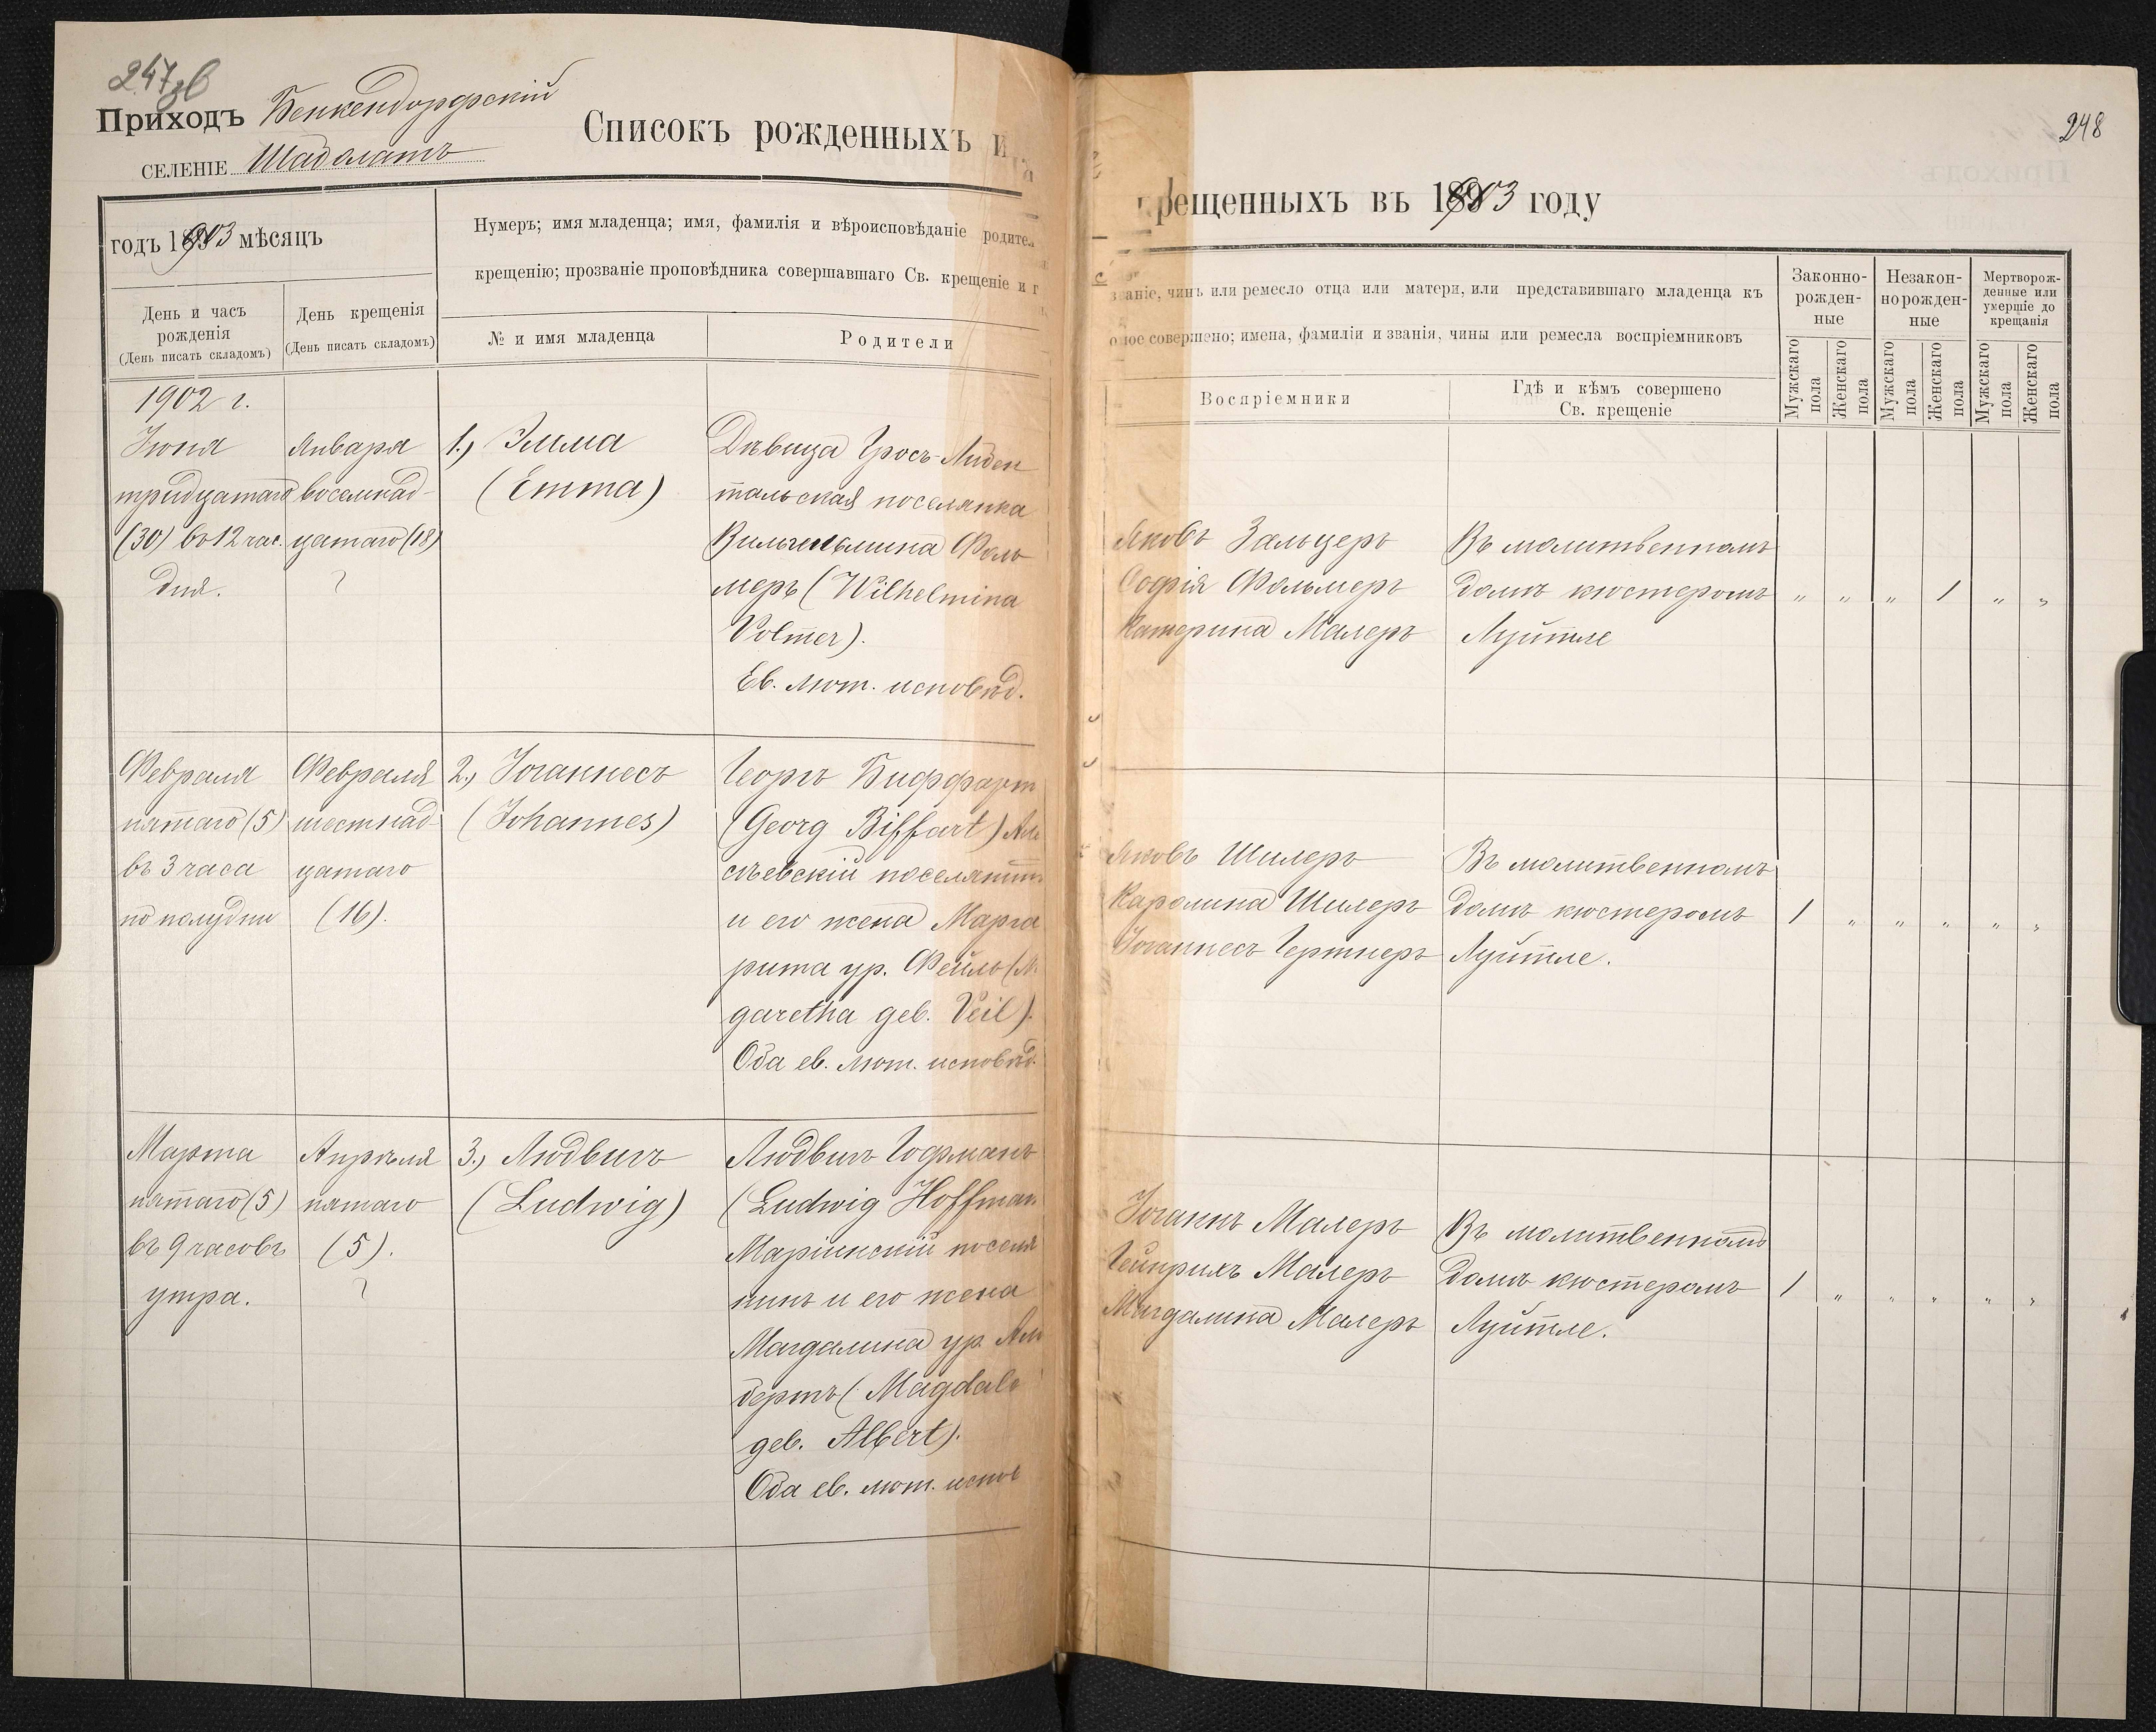 247зв
Приходъ Бенкендорфскій
селеніе Шабалатъ
Списокъ рожденныхъ и
годъ 1903 мѣсяцъ
Нумеръ; имя младенца; имя, фамилія и вѣроисповѣданіе родител
крещенію; прозваніе проповѣдника совершавшаго Св. крещеніе и г
День и часъ
рожденія
(День писать складомъ)
День крещенія
(День писать складомъ)
№ и имя младенца
Родители
1902 г.
Іюня
тридцатаго
(30) въ 12 час.
дня.
Января
восемнад-
цатаго (18)
1.) Эмма
(Emma)
Дѣвица Гросъ-Либен
тальская поселянка
Вильгельмина Фоль
меръ (Wilhelmina
Volmer).
Ев. лют. исповѣд.
Февраля
пятаго (5)
въ 3 часа
по полудни
Февраля
шестнад-
цатаго
(16).
2.) Іоганнесъ
(Johannes)
Георгъ Биффарт
(Georg Biffart)
сѣевскій поселянин
и его жена Марга
рита ур. Фейль (М
garetha geb. Veil).
Оба ев. лют. исповѣд.
Марта
пятаго (5)
въ 9 часовъ
утра.
Апрѣля
пятаго
(5).
3.) Людвигъ
(Ludwig)
Людвигъ Гофманъ
(Ludwig Hoffman
Маріинскій поселя
нинъ и его жена
Магдалина ур. Аль
бертъ (Magdale
geb. Albert).
Оба ев. лют. испов
248
крещенныхъ въ 1903 году
званіе, чинъ или ремесло отца или матери, или представившаго младенца къ
оное совершено; имена, фамиліи и званія, чины или ремесла воспріемниковъ
Воспріемники
Гдѣ и кѣмъ совершено
Св. крещеніе
Законно-
рожден-
ные
Незакон-
норожден-
ные
Мертворож-
денные или
умершіе до
крещанія
Мужскаго пола
Женскаго пола
Мужскаго пола
Женскаго пола
Мужскаго пола
Женскаго пола
Яковъ Зальцеръ
Софія Фольмеръ
Катерина Малеръ
Въ молитвенномъ
домѣ кюстеромъ
Луйтле
„ „ „ 1 „ „
Яковъ Шилеръ
Каролина Шилеръ
Іоганнесъ Гертнеръ
Въ молитвенномъ
домѣ кюстеромъ
Луйтле.
1 „ „ „ „ „
Іоганнъ Малеръ
Гейнрихъ Малеръ
Магдалина Малеръ
Въ молитвенномъ
домѣ кюстеромъ
Луйтле.
1 „ „ „ „ „